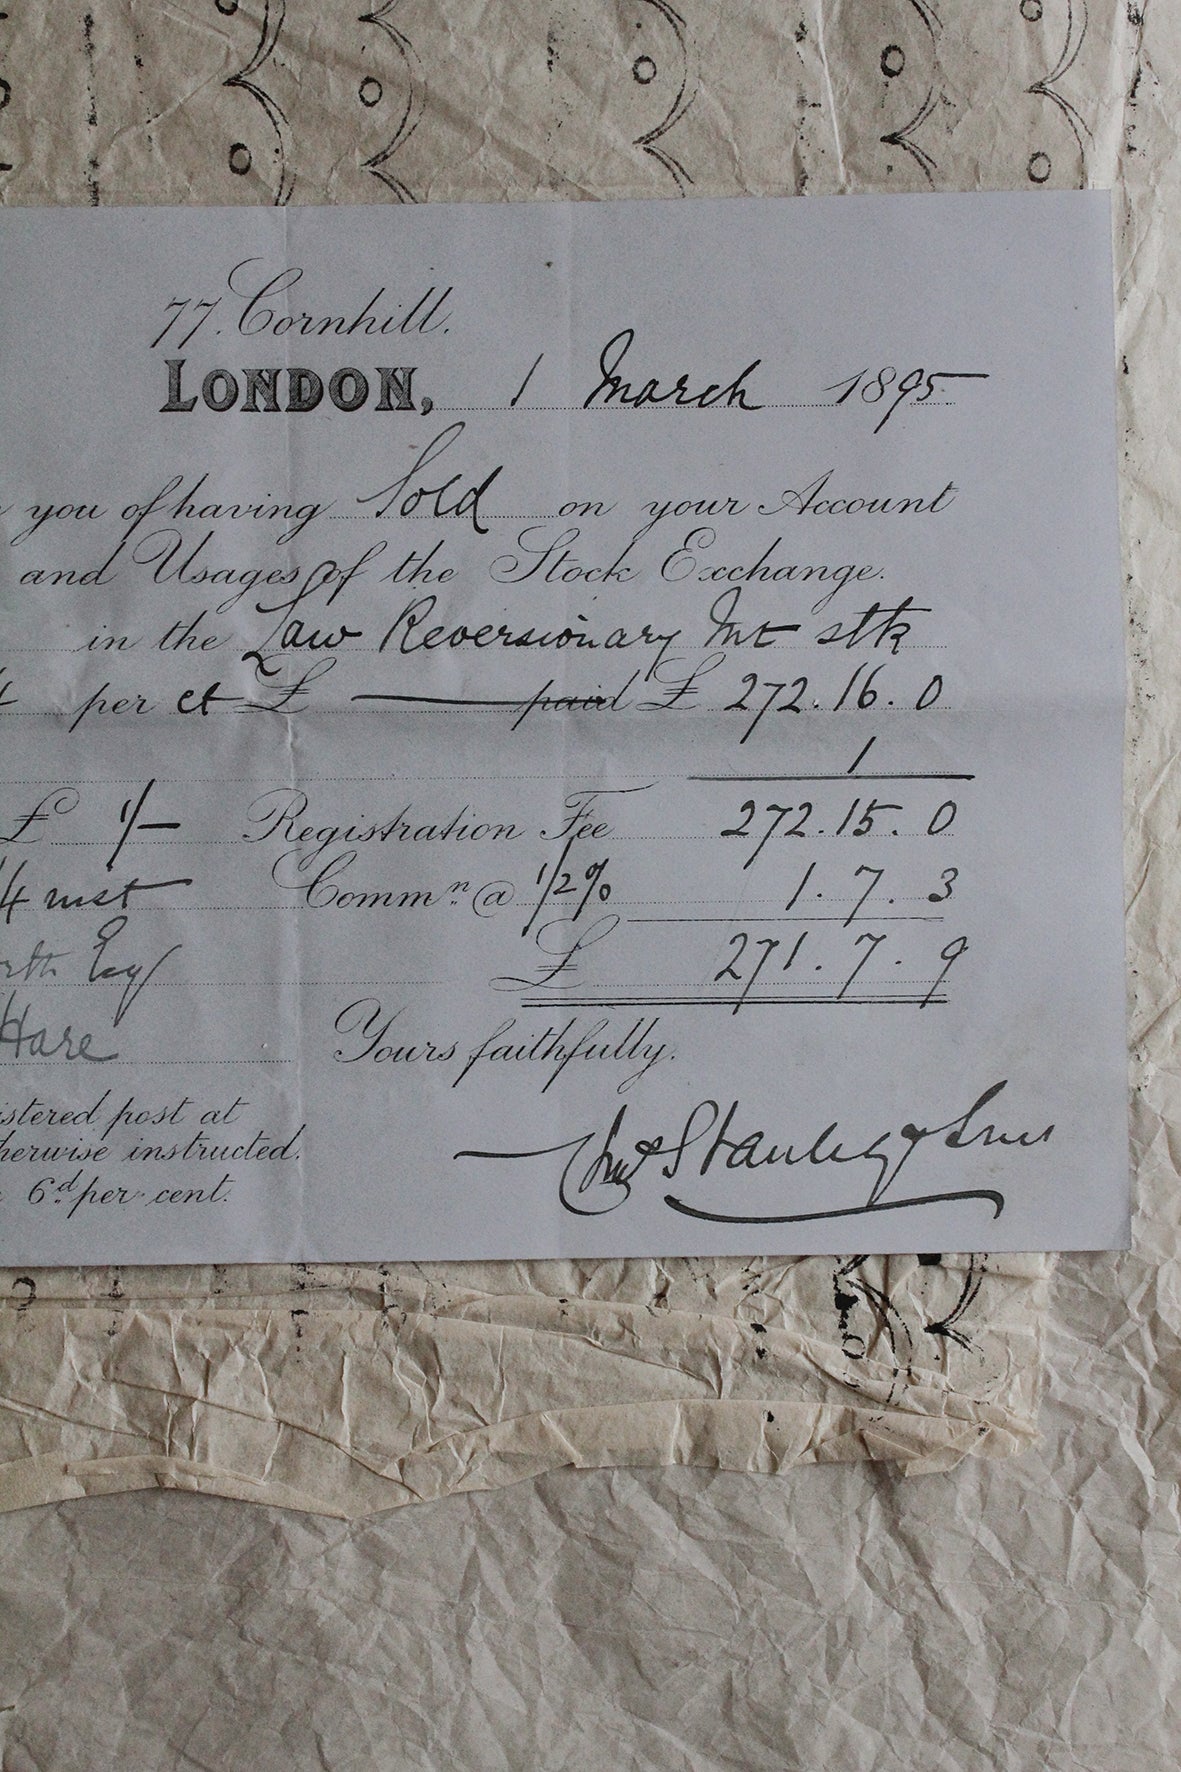 77. Cornhill.
LONDON, 1 March 1895
you of having Sold on your Account
and Usages of the Stock Exchange.
in the Law Reversionary Int stk
per ct £ paid £ 272.16.0
1
£ 1/- Registration Fee 272.15.0
4 inst Commn. @ 1/2% 1.7.3
Esq £ 271.7.9
Hare Yours faithfully.
post at
instructed. Stanley & Sons
6d. per cent.